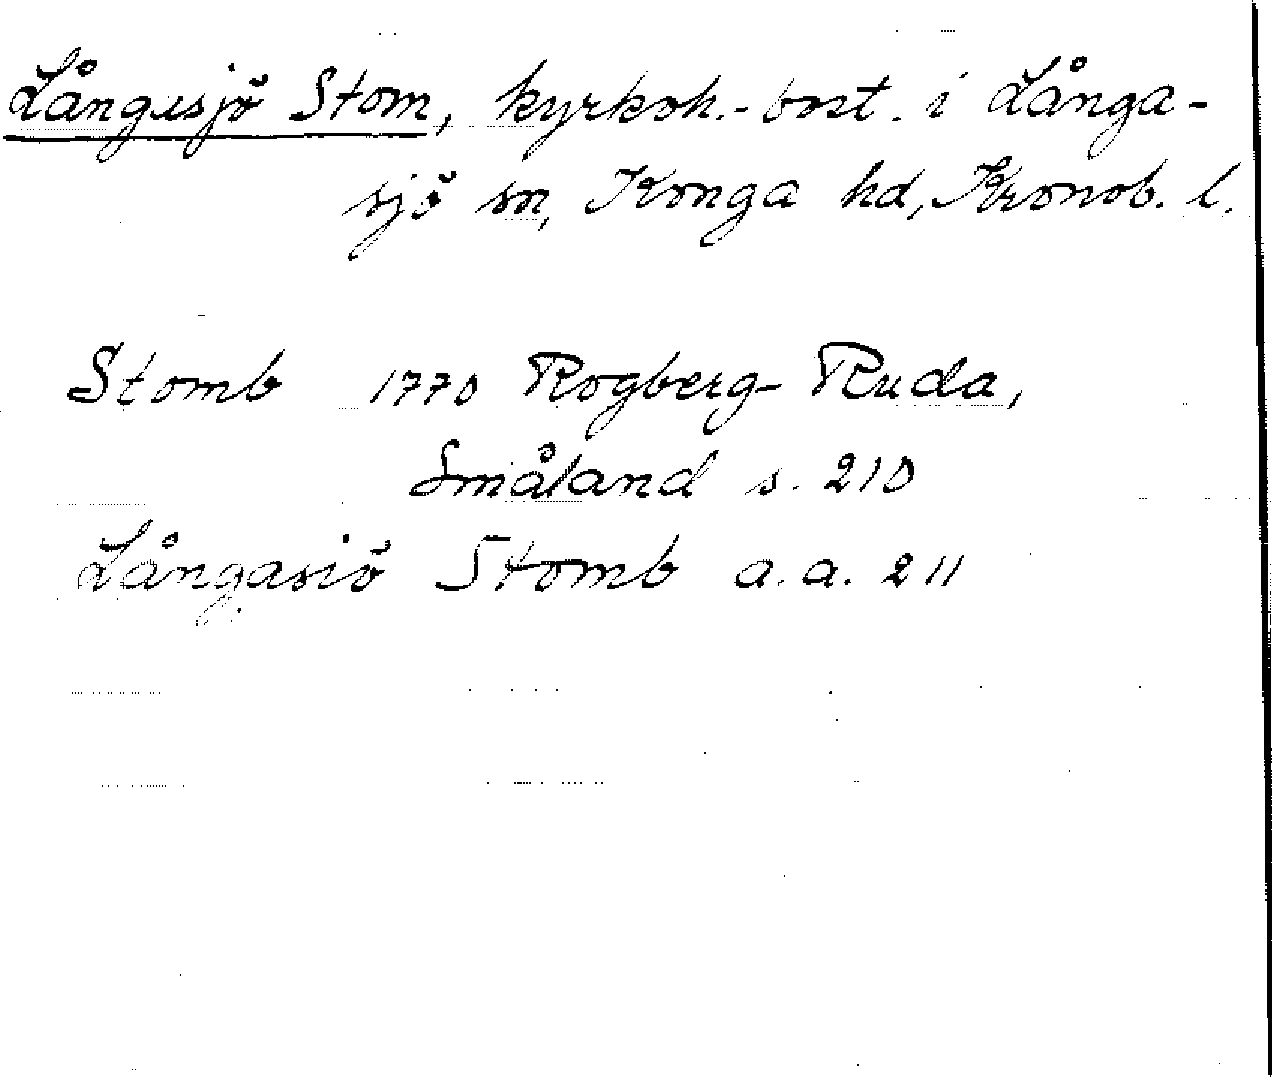 Långasjö Stom, kyrkoh.-bost. i Långa-
sjö sn, Konga hd, Kronob. l.
Stomb 1770 Rogberg-Ruda,
Småland s. 210
Långasiö Stomb a.a. 211